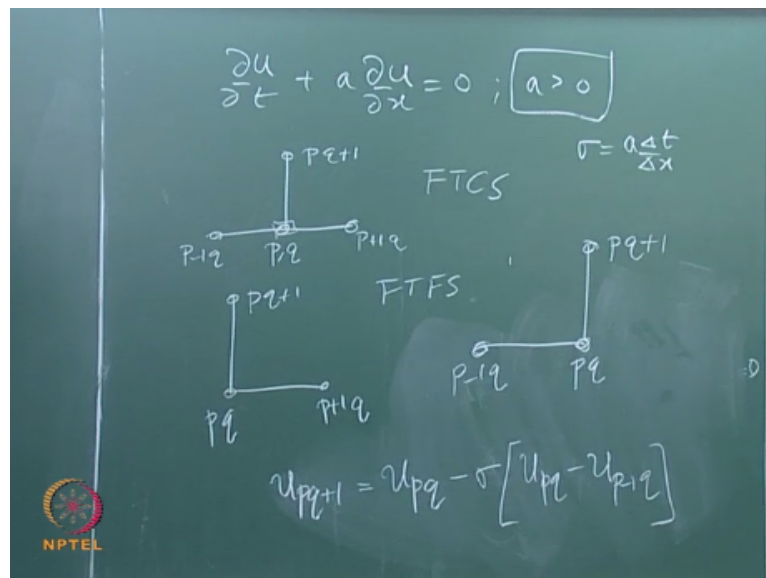 ∂u/∂t + a ∂u/∂x = 0 ; a > 0
σ = a Δt/Δx
pq+1
FTCS
p-1q p,q p+1q
pq+1
FTFS
pq+1
p-1q pq
pq p+1q
u_pq+1 = u_pq - σ[u_pq - u_p-1q]
NPTEL